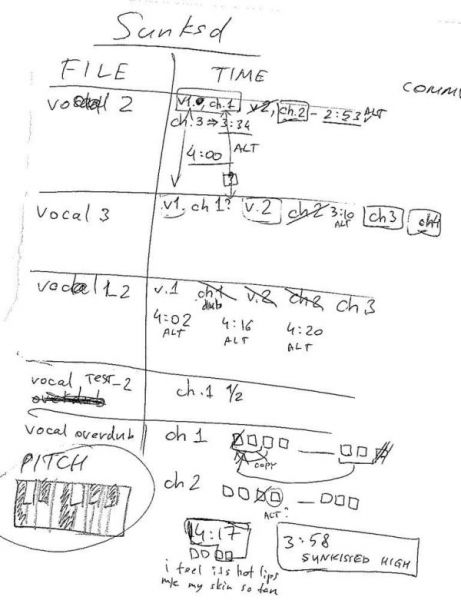 Sunksd
FILE TIME
COMM
vocal 2 v1., ch.1 v2, ch.2 - 2:53 ALT
ch.3 ⇒ 3:34 ALT
4:00
?
vocal 3 v1. ch1? v.2 ch2 3:10 ALT ch3 ch4
vocal 1_2 v.1 ch1 dub v.2 ch2 ch3
4:02 ALT 4:16 ALT 4:20 ALT
vocal TEST_2 ch.1 1/2
overdub
vocal overdub ch 1
COPY
PITCH
ch 2
ALT?
14:17
3:58
SUNKISSED HIGH
i feel its hot lips
my skin so tan